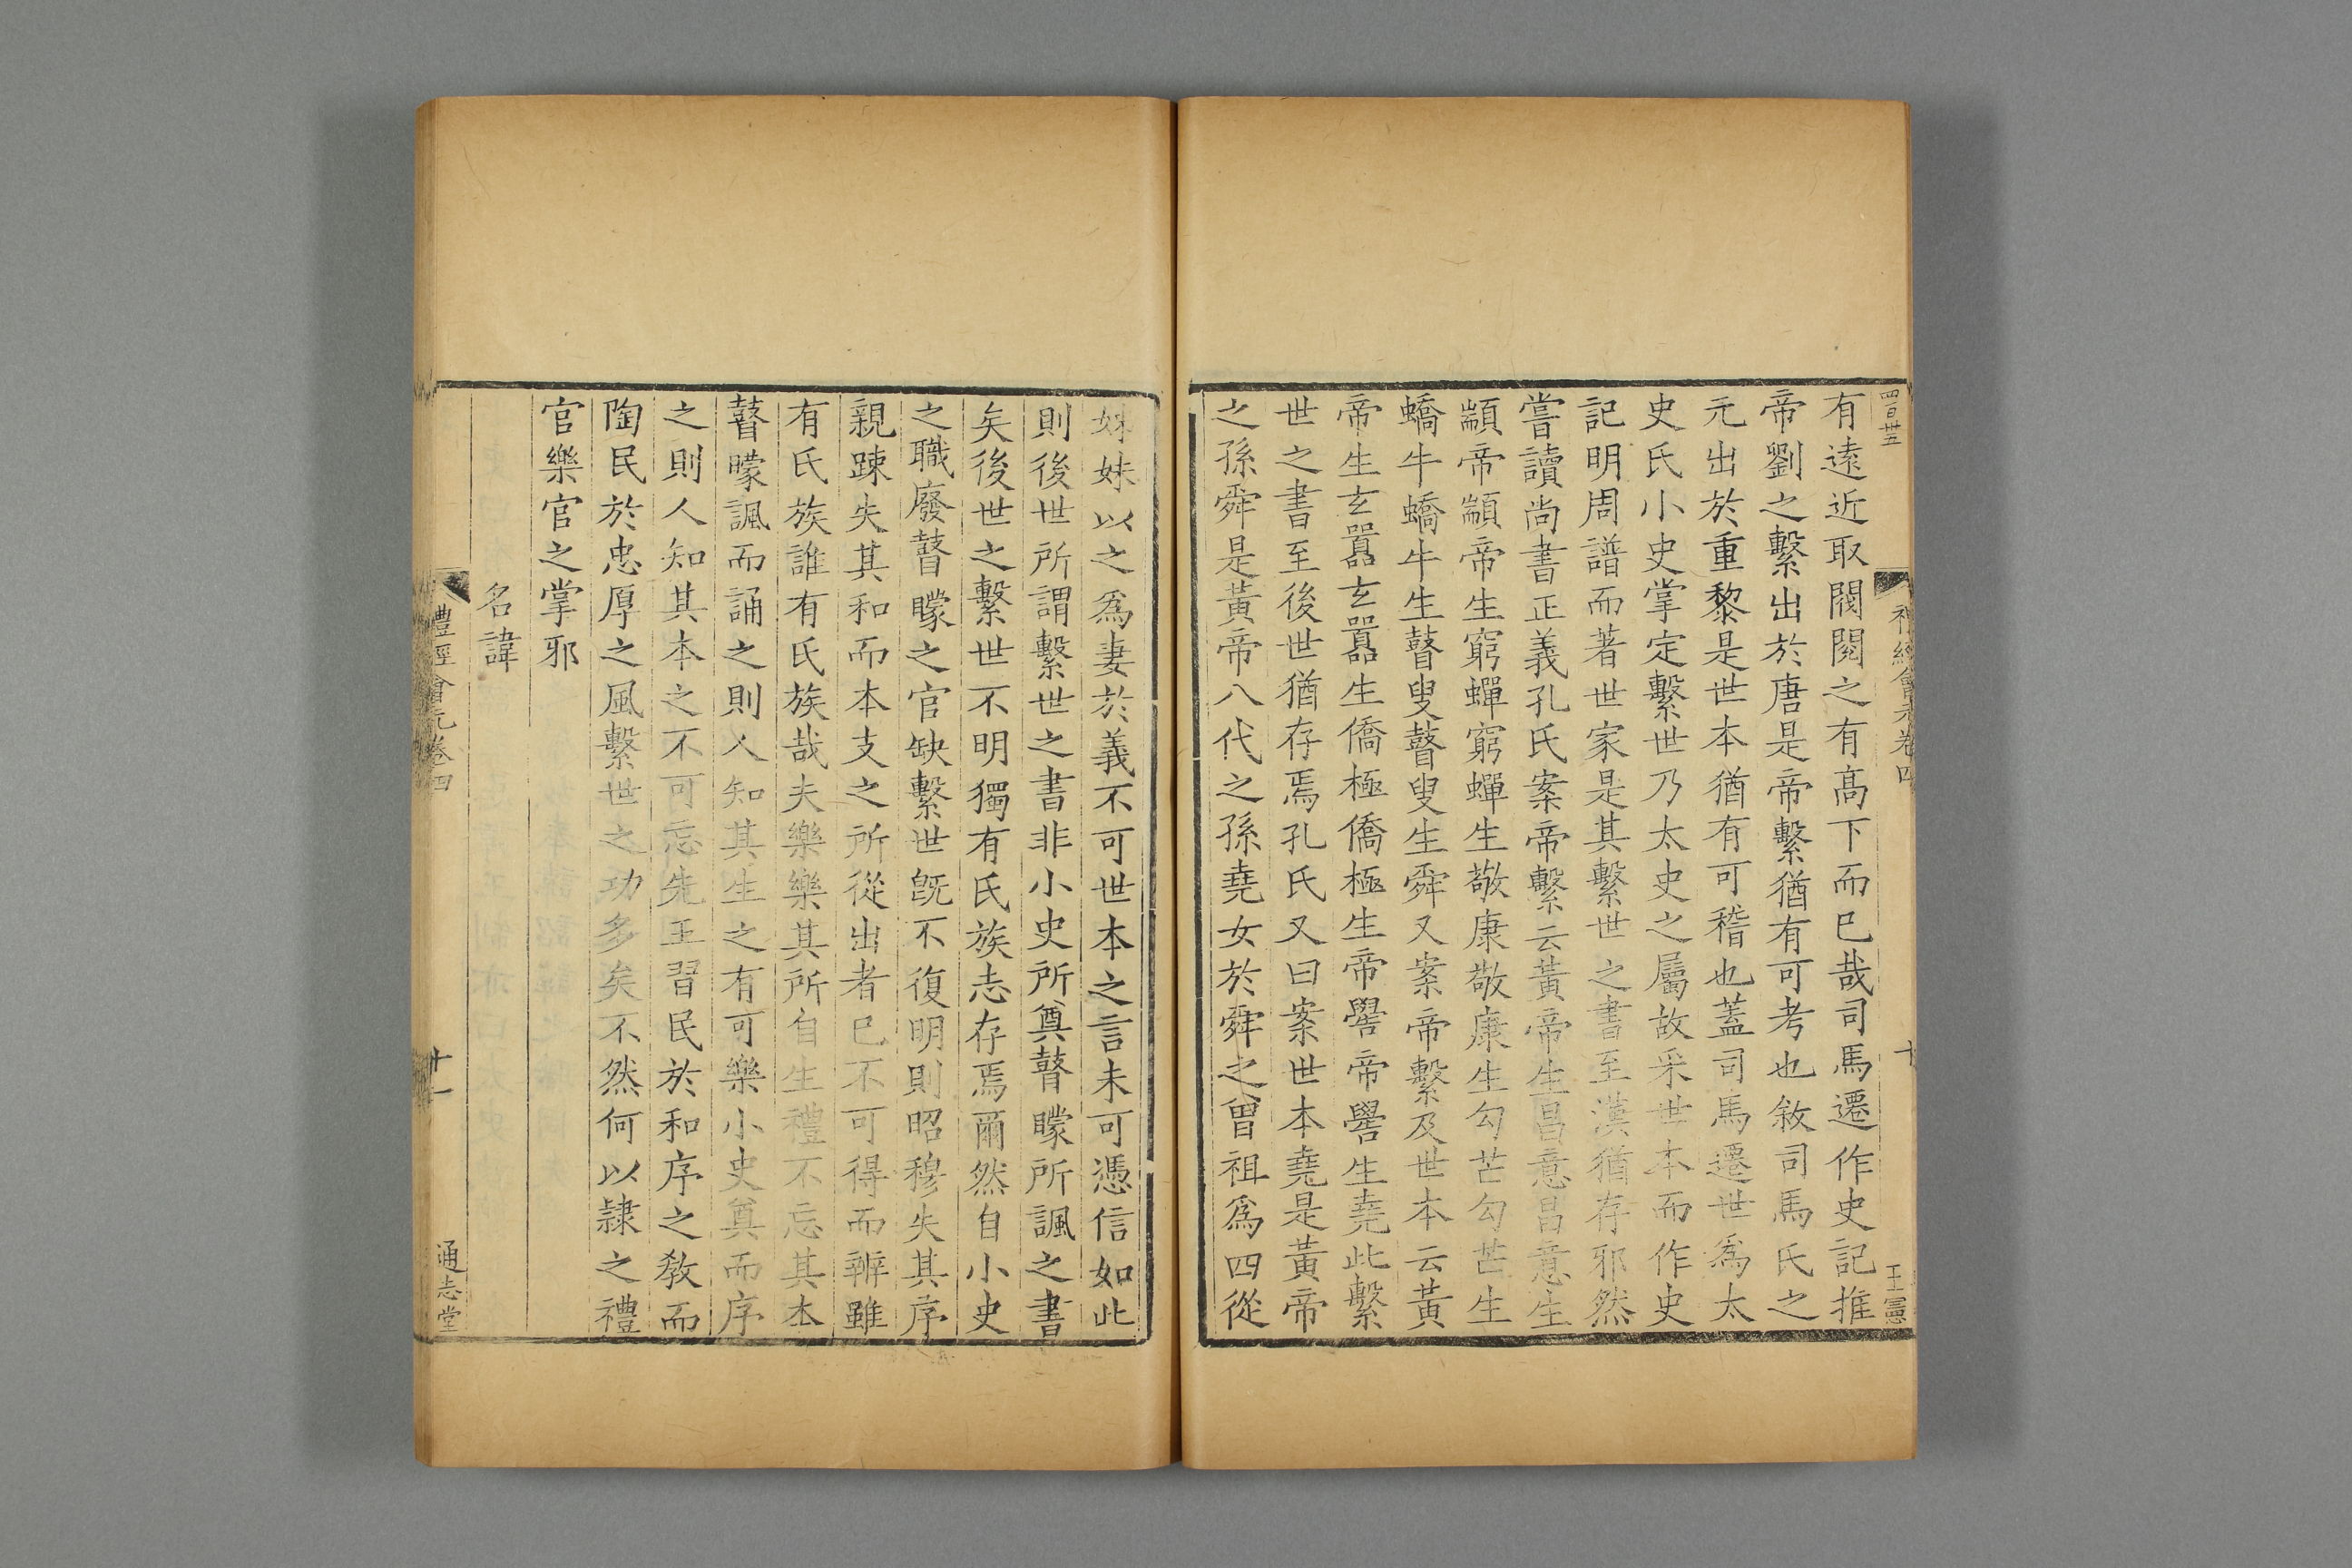 四百廿五
禮經會元卷四
十
王憲
有逺近取閥閱之有高下而已哉司馬遷作史記推
帝劉之繫出於唐是帝繫猶有可考也敘司馬氏之
元出於重黎是世本猶有可稽也蓋司馬遷世爲太
史氏小史掌定繫世乃太史之屬故采世本而作史
記明周譜而著世家是其繫世之書至漢猶存邪然
嘗讀尚書正義孔氏案帝繫云黃帝生昌意昌意生
顓帝顓帝生窮蟬窮蟬生敬康敬康生勾芒勾芒生
蟜牛蟜牛生瞽叟瞽叟生舜又案帝繫及世本云黃
帝生玄囂玄囂生僑極僑極生帝嚳帝嚳生堯此繫
世之書至後世猶存焉孔氏又曰案世本堯是黃帝
之孫舜是黃帝八代之孫堯女於舜之曽祖爲四從
姊妹以之爲妻於義不可世本之言未可憑信如此
則後世所謂繫世之書非小史所奠瞽矇所諷之書
矣後世之繫世不明獨有氏族志存焉爾然自小史
之職廢瞽矇之官缺繫世旣不復明則昭穆失其序
親踈失其和而本支之所從出者已不可得而辨雖
有氏族誰有氏族哉夫樂樂其所自生禮不忘其本
瞽矇諷而誦之則人知其生之有可樂小史奠而序
之則人知其本之不可忘先王習民於和序之敎而
陶民於忠厚之風繫世之功多矣不然何以隷之禮
官樂官之掌邪
名諱
禮經會元卷四
十一
通志堂